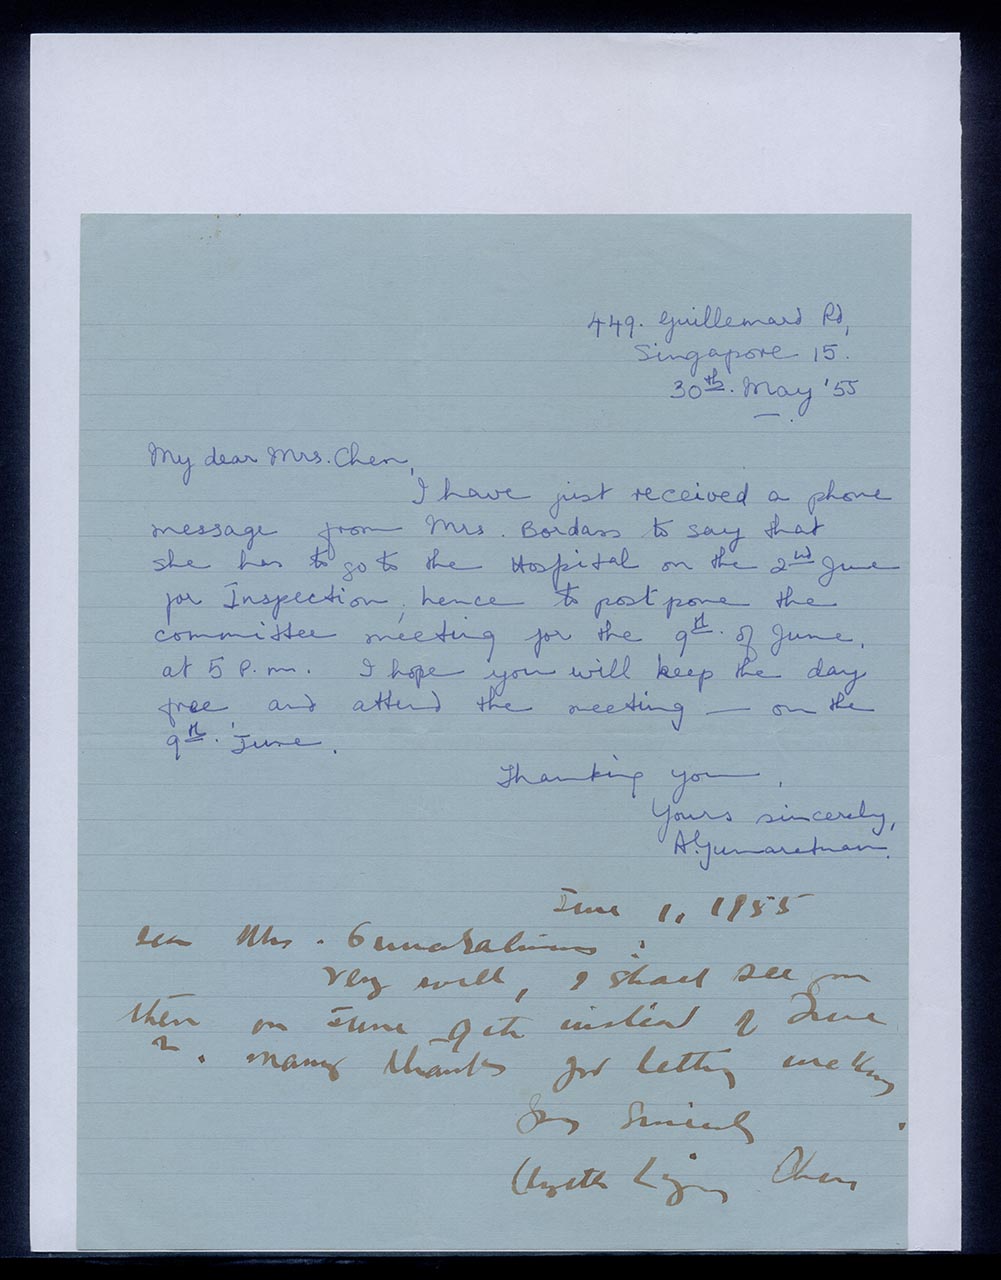 449. Guillemard Rd,
Singapore 15.
30th. May '55
My dear Mrs. Chen,
I have just received a phone
message from Mrs. Bordass to say that
she has to go to the Hospital on the 2nd June
for Inspection, hence to postpone the
committee meeting for the 9th. of June,
at 5 P.m. I hope you will keep the day
free and attend the meeting — on the
9th. June.
Thanking you,
Yours sincerely,
A. Gunaratnam.
June 1, 1955
Dear Mrs. Gunaratnam:
Very well, I shall see you
then on June 9th instead of June
2. Many thanks for letting me know
Yours Sincerely
Chen